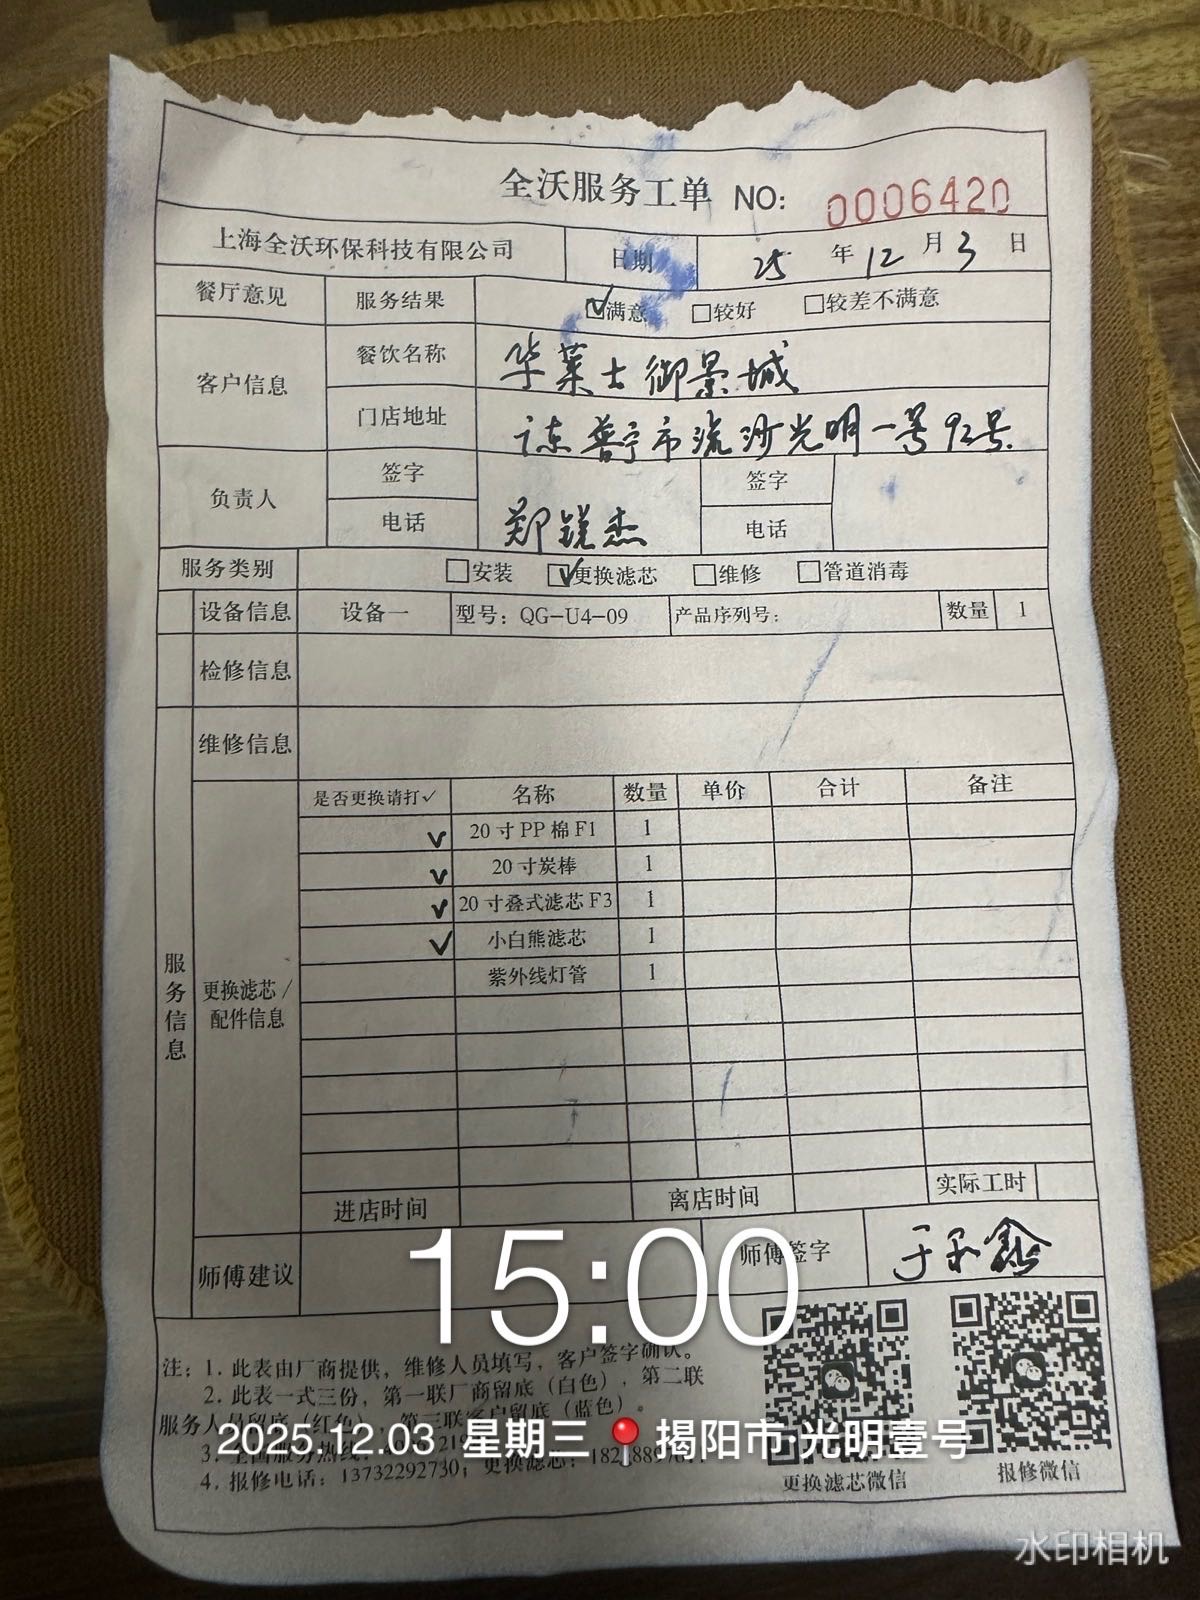 全沃服务工单 NO: 0006420
上海全沃环保科技有限公司 日期 25 年 12 月 3 日
餐厅意见 服务结果 ☑满意 □较好 □较差不满意
客户信息 餐饮名称 华莱士御景城
门店地址 广东普宁市流沙光明一号92号
负责人 签字 郑锐杰 签字
电话 电话
服务类别 □安装 ☑更换滤芯 □维修 □管道消毒
设备信息 设备一 型号：QG-U4-09 产品序列号： 数量 1
检修信息
维修信息
服务信息
更换滤芯/配件信息
是否更换请打✓ 名称 数量 单价 合计 备注
✓ 20寸PP棉F1 1
✓ 20寸炭棒 1
✓ 20寸叠式滤芯F3 1
✓ 小白熊滤芯 1
紫外线灯管 1
进店时间 离店时间 实际工时
师傅建议 师傅签字
15:00
注：1. 此表由厂商提供，维修人员填写，客户签字确认。
2. 此表一式三份，第一联厂商留底（白色），第二联
服务人员留底（红色），第三联客户留底（蓝色）。
3. 全国服务热线：
4. 报修电话：13732292730；更换滤芯：
2025.12.03 星期三 揭阳市·光明壹号
更换滤芯微信 报修微信
水印相机